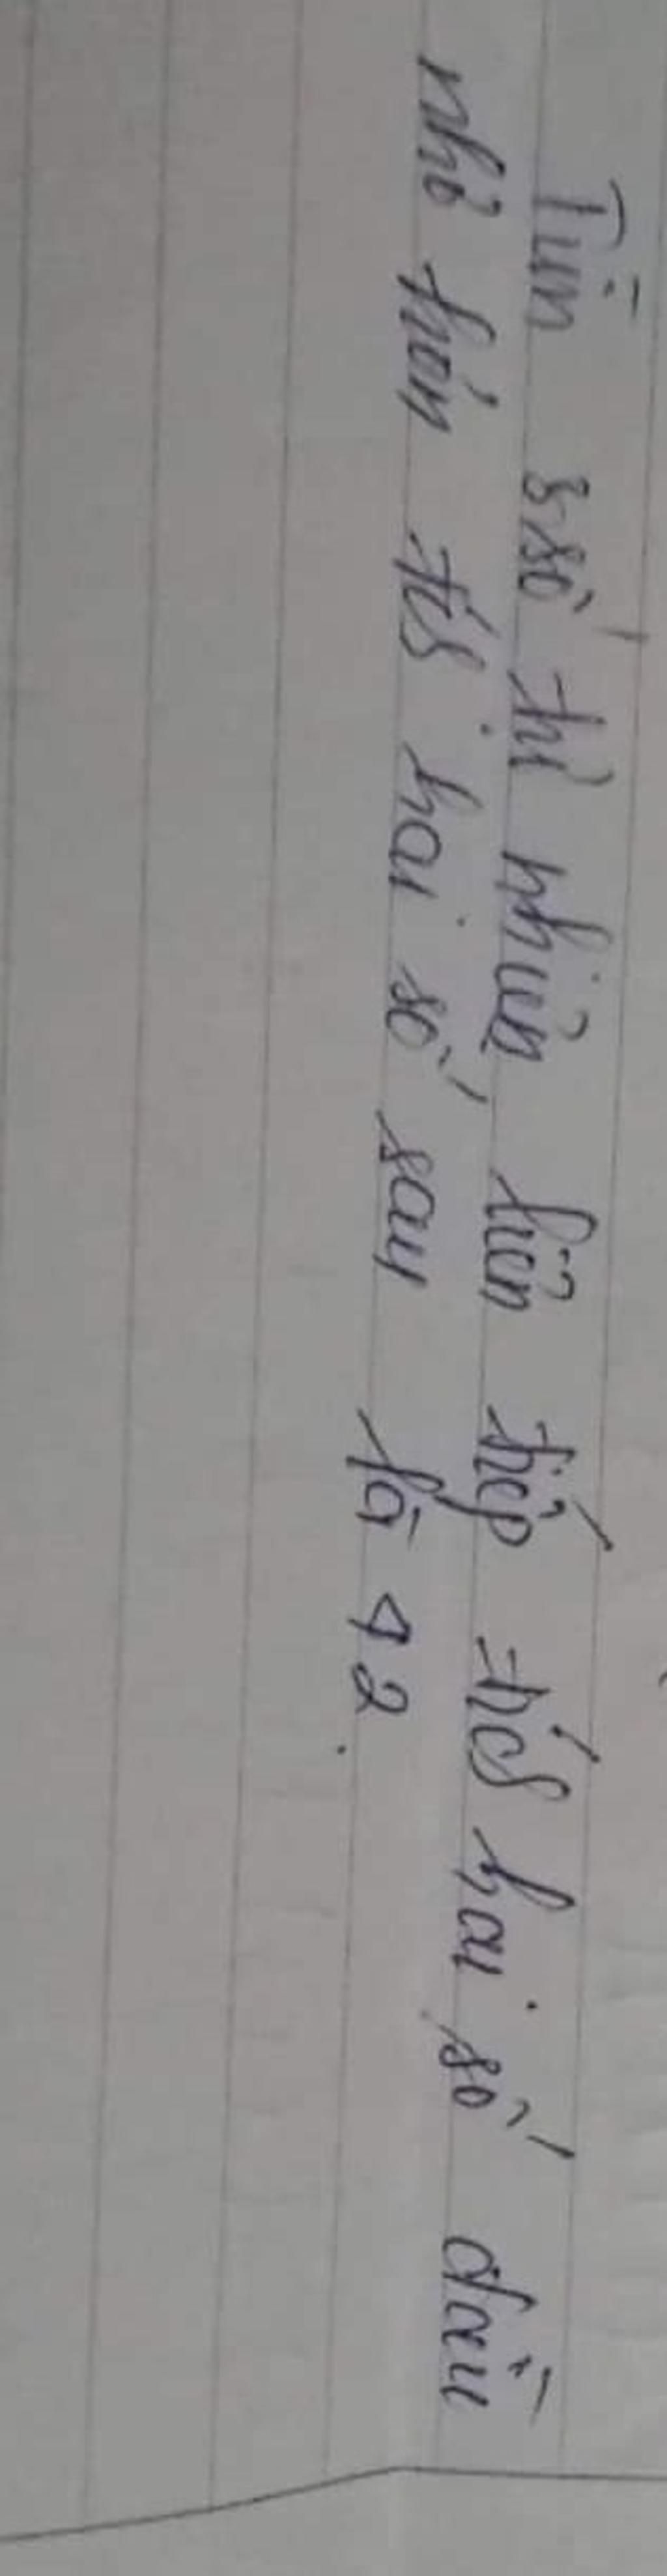 Tìm 3 số tự nhiên liên tiếp tích hai số đầu
nhỏ hơn tích hai số sau là 42.